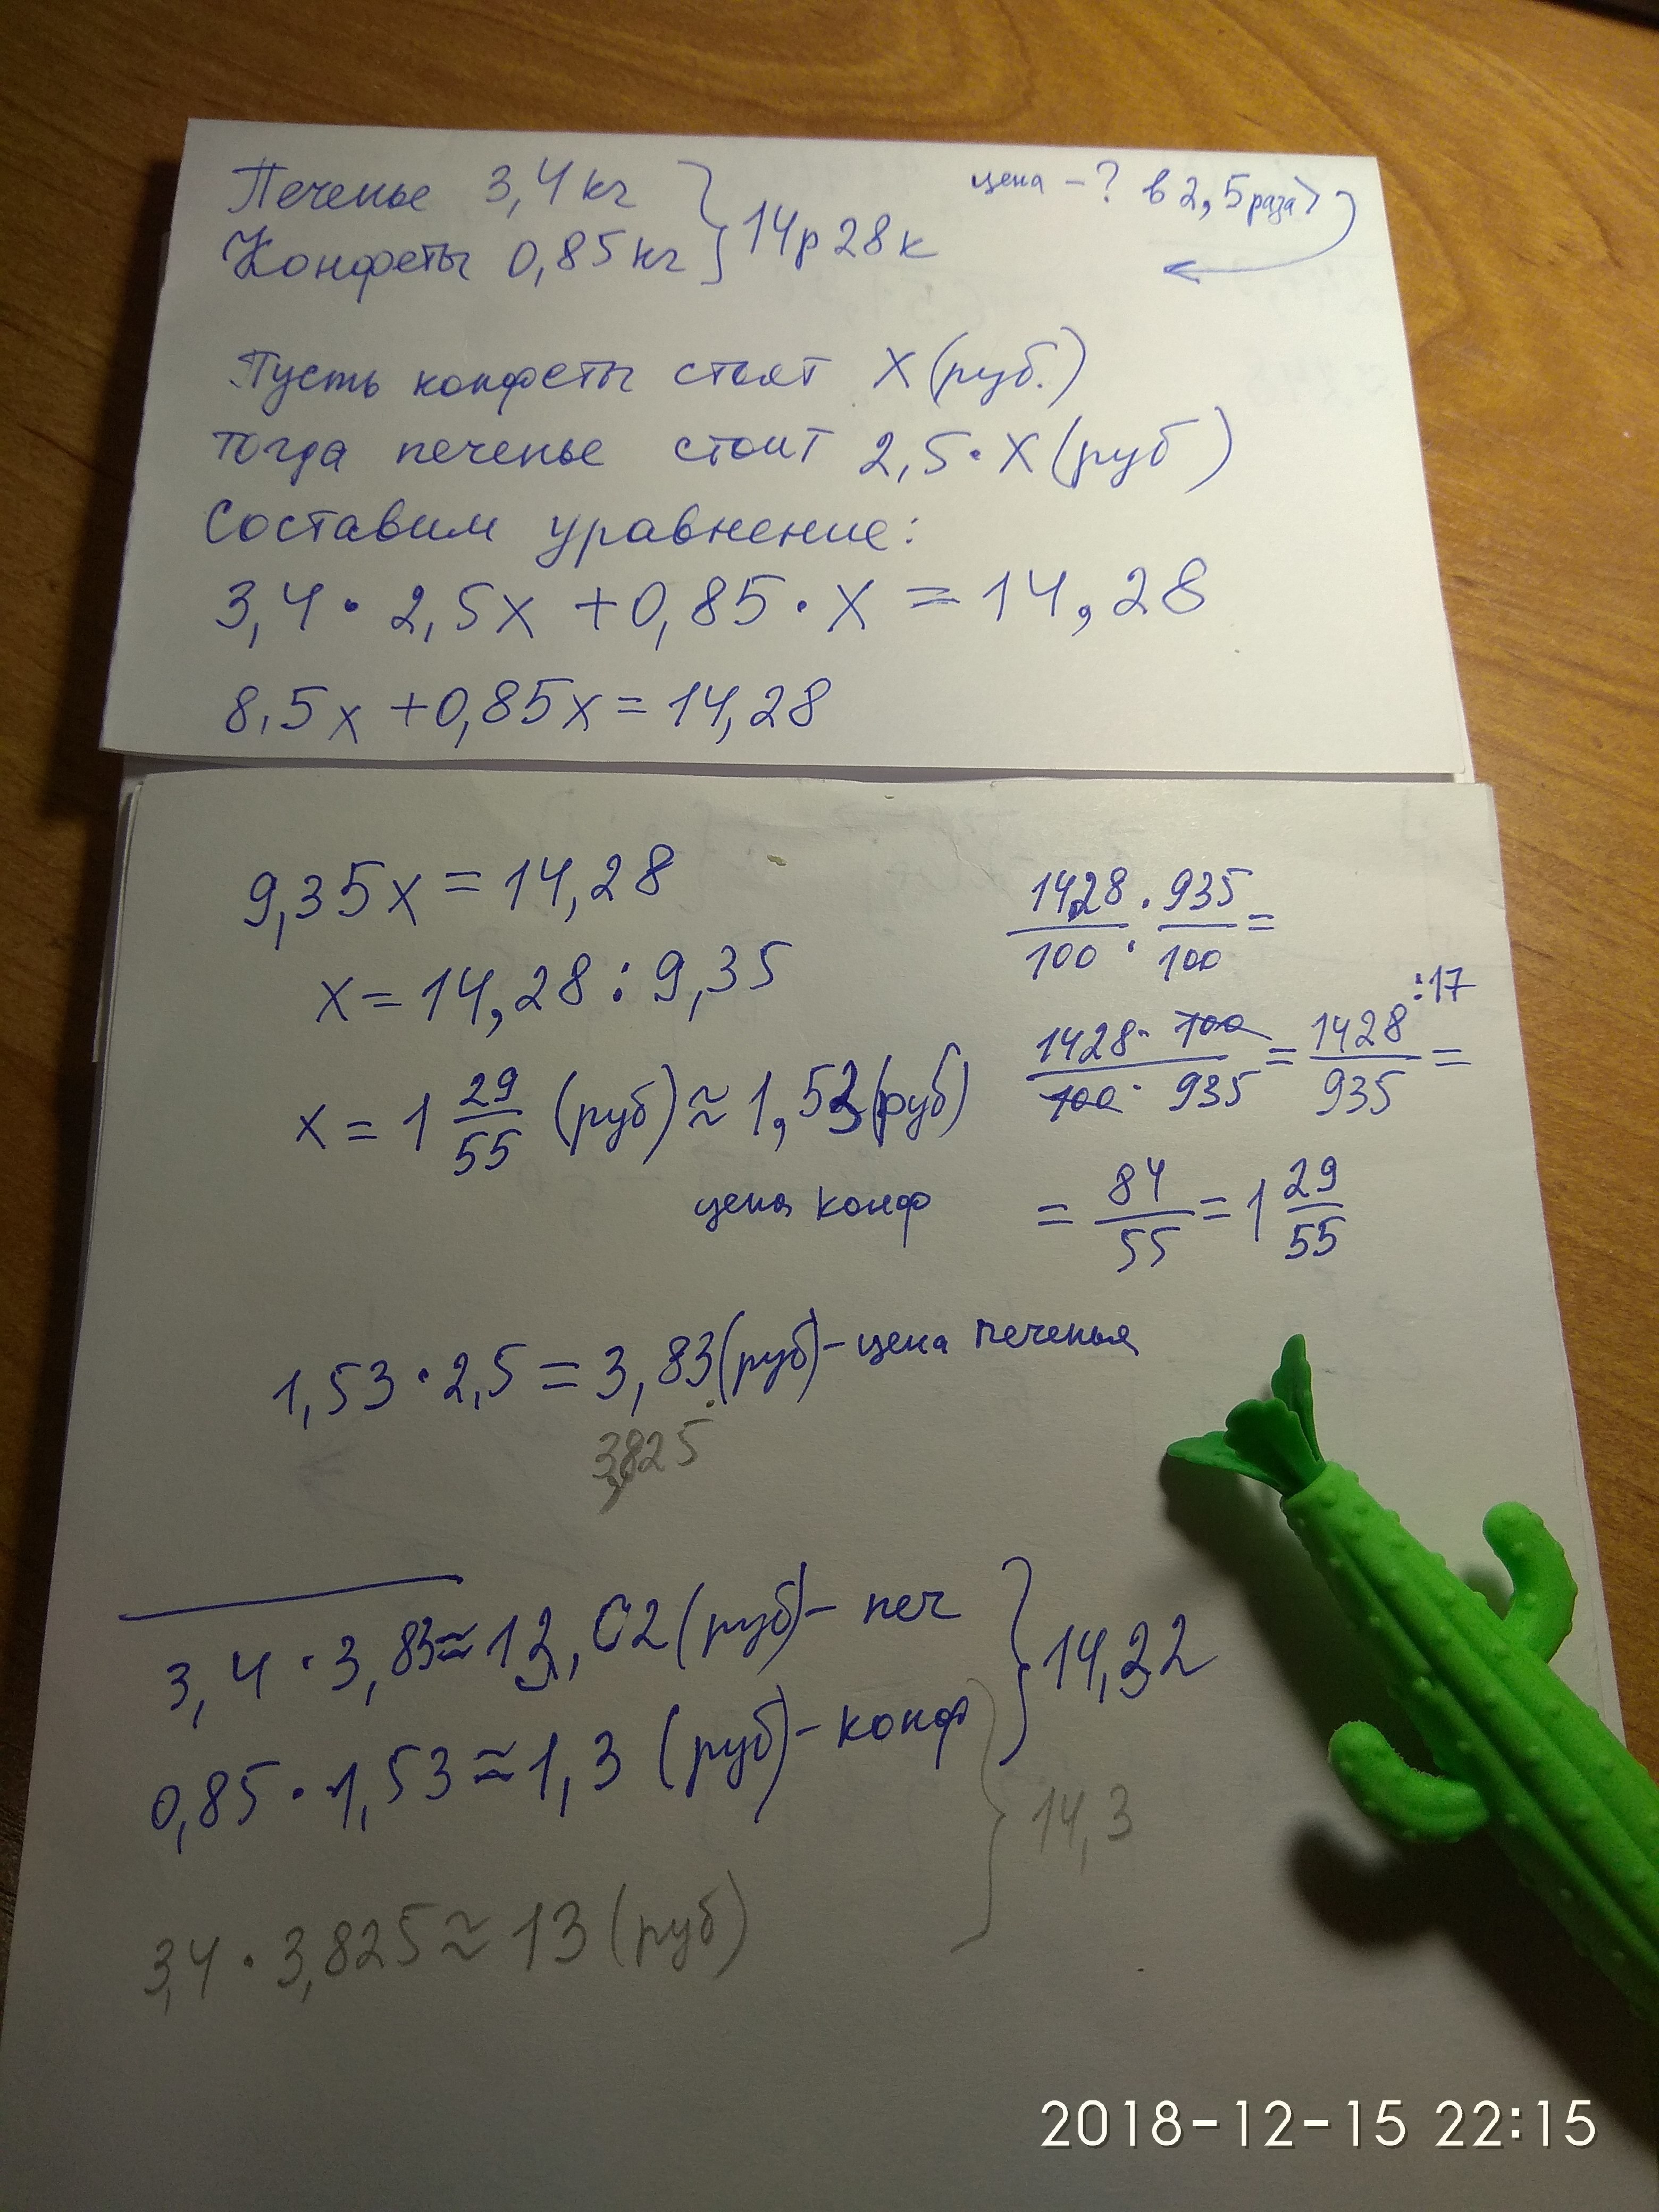 Печенье 3,4 кг } 14р 28к цена - ? в 2,5 раза >
Конфеты 0,85 кг
Пусть конфеты стоят х (руб.)
тогда печенье стоит 2,5 · х (руб)
Составим уравнение:
3,4 · 2,5х + 0,85 · х = 14,28
8,5х + 0,85х = 14,28
9,35х = 14,28
х = 14,28 : 9,35
х = 1 29/55 (руб) ≈ 1,53 (руб)
цена конф
1428/100 · 935/100 =
1428 · 100 / 100 · 935 = 1428/935 :17 =
= 84/55 = 1 29/55
1,53 · 2,5 = 3,83 (руб) - цена печенья
3,825
3,4 · 3,83 ≈ 13,02 (руб) - печ } 14,32
0,85 · 1,53 ≈ 1,3 (руб) - конф
} 14,3
3,4 · 3,825 ≈ 13 (руб)
2018-12-15 22:15